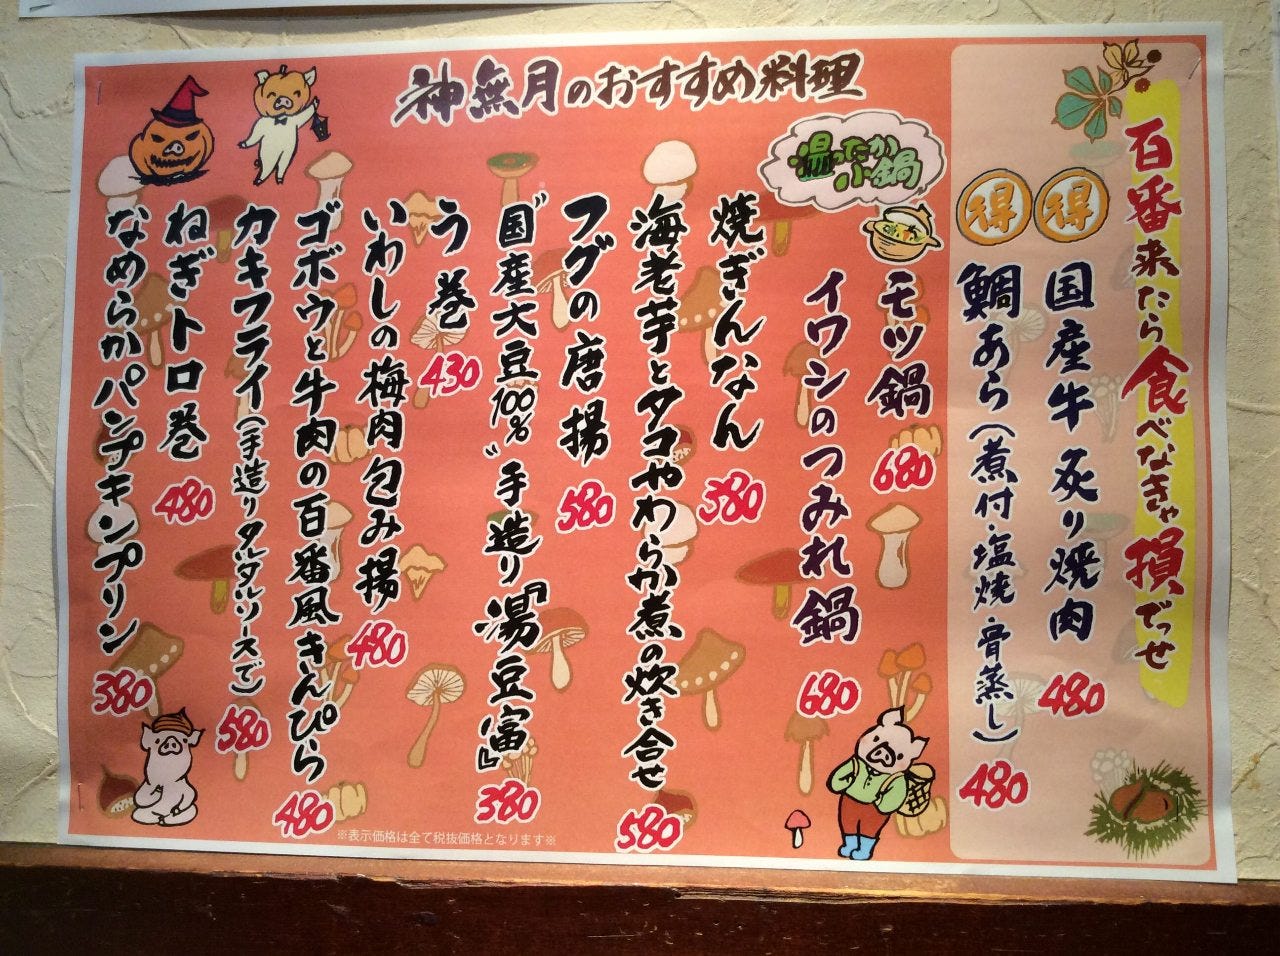 神無月のおすすめ料理
百番来たら食べなきゃ損でっせ
得
国産牛炙り焼肉
480
得
鯛あら(煮付・塩焼・骨蒸し)
480
温ったか
小鍋
モツ鍋
680
イワシのつみれ鍋
680
焼ぎんなん
380
海老芋とタコやわらか煮の炊き合せ
580
フグの唐揚
580
"国産大豆100%"手造り『湯豆富』
380
う巻
430
いわしの梅肉包み揚
480
ゴボウと牛肉の百番風きんぴら
480
カキフライ(手造りタルタルソースで)
580
ねぎトロ巻
480
なめらかパンプキンプリン
380
※表示価格は全て税抜価格となります※